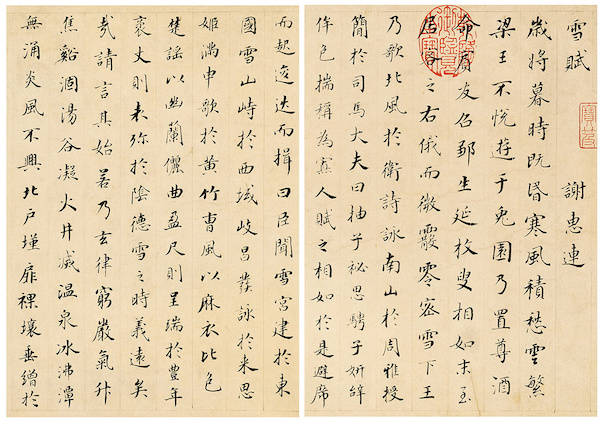 雪賦 謝惠連
歲將暮時既昏寒風積愁雲繁
梁王不悅遊于兔園乃置尊酒
命賓友召鄒生延枚叟相如末至
居客之右俄而微霰零密雪下王
乃歌北風於衛詩詠南山於周雅授
簡於司馬大夫曰抽子祕思騁子妍辭
侔色揣稱為寡人賦之相如於是避席
而起逡巡而揖曰臣聞雪宮建於東
國雪山峙於西域岐昌發詠於來思
姬滿申歌於黃竹曹風以麻衣比色
楚謠以幽蘭儷曲盈尺則呈瑞於豐年
袤丈則表沴於陰德雪之時義遠矣
哉請言其始若乃玄律窮嚴氣升
焦谿涸湯谷凝火井滅溫泉冰沸潭
無涌炎風不興北戶墐扉裸壤垂繒於